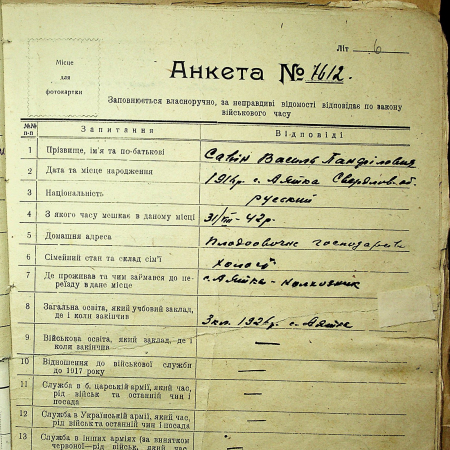 Літ 6
Місце
для
фотокартки
Анкета № 7612.
Заповнюється власноручно, за неправдиві відомості відповідає по закону
військового часу
№№
п-п
Запитання
Відповіді
1 Прізвище, ім'я та по-батькові Савін Василь Панфілович
2 Дата та місце народження 1916р. с. Аятка Свердлов. об.
3 Національність русский
4 З якого часу мешкає в даному місці 31/VII - 42р.
5 Домашня адреса господарство
6 Сімейний стан та склад сім'ї Холост
7 Де проживав та чим займався до пе-
реїзду в дане місце с. Аятка - колхозник
8 Загальна освіта, який учбовий заклад,
де і коли закінчив 3 кл. 1926р. с. Аятка
9 Військова освіта, який заклад, де і
коли закінчив —
10 Відношення до військової служби
до 1917 року —
11 Служба в б. царській армії, який час,
рід військ та останній чин і
посада —
12 Служба в Українській армії, який час,
рід військ та останній чин і посада —
13 Служба в інших арміях (за винятком
червоної—рід військ, який час,